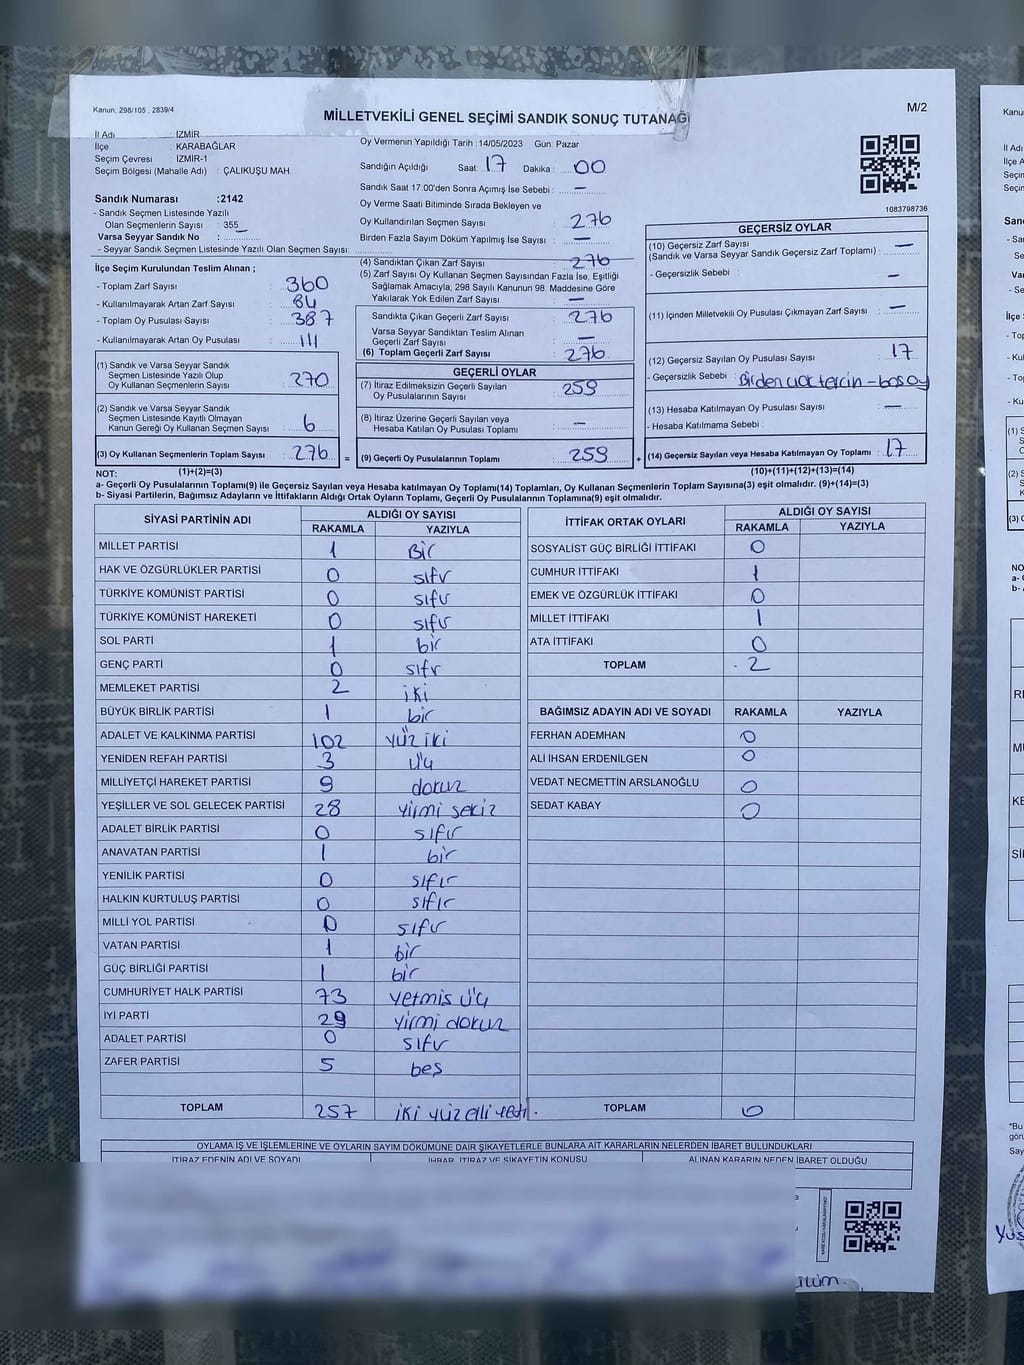 Kanun: 298/105 , 2839/4
M/2
MİLLETVEKİLİ GENEL SEÇİMİ SANDIK SONUÇ TUTANAĞI
İl Adı : İZMİR
İlçe : KARABAĞLAR
Seçim Çevresi : İZMİR-1
Seçim Bölgesi (Mahalle Adı) : ÇALIKUŞU MAH.
Sandık Numarası :2142
- Sandık Seçmen Listesinde Yazılı
Olan Seçmenlerin Sayısı : 355
Varsa Seyyar Sandık No :
- Seyyar Sandık Seçmen Listesinde Yazılı Olan Seçmen Sayısı:
Oy Vermenin Yapıldığı Tarih :14/05/2023 Gün: Pazar
Sandığın Açıldığı Saat: 17 Dakika : 00
Sandık Saat 17:00'den Sonra Açımış İse Sebebi : —
Oy Verme Saati Bitiminde Sırada Bekleyen ve
Oy Kullandırılan Seçmen Sayısı : 276
Birden Fazla Sayım Döküm Yapılmış İse Sayısı : —
1083798736
İlçe Seçim Kurulundan Teslim Alınan ;
- Toplam Zarf Sayısı : 360
- Kullanılmayarak Artan Zarf Sayısı : 84
- Toplam Oy Pusulası Sayısı : 387
- Kullanılmayarak Artan Oy Pusulası : 111
(1) Sandık ve Varsa Seyyar Sandık
Seçmen Listesinde Yazılı Olup
Oy Kullanan Seçmenlerin Sayısı : 270
(2) Sandık ve Varsa Seyyar Sandık
Seçmen Listesinde Kayıtlı Olmayan
Kanun Gereği Oy Kullanan Seçmen Sayısı : 6
(3) Oy Kullanan Seçmenlerin Toplam Sayısı : 276
(1)+(2)=(3)
(4) Sandıktan Çıkan Zarf Sayısı : 276
(5) Zarf Sayısı Oy Kullanan Seçmen Sayısından Fazla İse, Eşitliği
Sağlamak Amacıyla; 298 Sayılı Kanunun 98. Maddesine Göre
Yakılarak Yok Edilen Zarf Sayısı : —
Sandıkta Çıkan Geçerli Zarf Sayısı : 276
Varsa Seyyar Sandıktan Teslim Alınan
Geçerli Zarf Sayısı : —
(6) Toplam Geçerli Zarf Sayısı : 276
GEÇERLİ OYLAR
(7) İtiraz Edilmeksizin Geçerli Sayılan
Oy Pusulalarının Sayısı : 259
(8) İtiraz Üzerine Geçerli Sayılan veya
Hesaba Katılan Oy Pusulası Toplamı : —
= (9) Geçerli Oy Pusulalarının Toplamı : 259 +
GEÇERSİZ OYLAR
(10) Geçersiz Zarf Sayısı
(Sandık ve Varsa Seyyar Sandık Geçersiz Zarf Toplamı) : —
- Geçersizlik Sebebi : —
(11) İçinden Milletvekili Oy Pusulası Çıkmayan Zarf Sayısı : —
(12) Geçersiz Sayılan Oy Pusulası Sayısı : 17
- Geçersizlik Sebebi : Birden çok tercih - boş oy
(13) Hesaba Katılmayan Oy Pusulası Sayısı : —
- Hesaba Katılmama Sebebi :
(14) Geçersiz Sayılan veya Hesaba Katılmayan Oy Toplamı : 17
(10)+(11)+(12)+(13)=(14)
NOT:
a- Geçerli Oy Pusulalarının Toplamı(9) ile Geçersiz Sayılan veya Hesaba katılmayan Oy Toplamı(14) Toplamları, Oy Kullanan Seçmenlerin Toplam Sayısına(3) eşit olmalıdır. (9)+(14)=(3)
b- Siyasi Partilerin, Bağımsız Adayların ve İttifakların Aldığı Ortak Oyların Toplamı, Geçerli Oy Pusulalarının Toplamına(9) eşit olmalıdır.
SİYASİ PARTİNİN ADI ALDIĞI OY SAYISI
RAKAMLA YAZIYLA
MİLLET PARTİSİ 1 Bir
HAK VE ÖZGÜRLÜKLER PARTİSİ 0 sıfır
TÜRKİYE KOMÜNİST PARTİSİ 0 sıfır
TÜRKİYE KOMÜNİST HAREKETİ 0 sıfır
SOL PARTİ 1 bir
GENÇ PARTİ 0 sıfır
MEMLEKET PARTİSİ 2 iki
BÜYÜK BİRLİK PARTİSİ 1 bir
ADALET VE KALKINMA PARTİSİ 102 yüz iki
YENİDEN REFAH PARTİSİ 3 üç
MİLLİYETÇİ HAREKET PARTİSİ 9 dokuz
YEŞİLLER VE SOL GELECEK PARTİSİ 28 yirmi sekiz
ADALET BİRLİK PARTİSİ 0 sıfır
ANAVATAN PARTİSİ 1 bir
YENİLİK PARTİSİ 0 sıfır
HALKIN KURTULUŞ PARTİSİ 0 sıfır
MİLLİ YOL PARTİSİ 0 sıfır
VATAN PARTİSİ 1 bir
GÜÇ BİRLİĞİ PARTİSİ 1 bir
CUMHURİYET HALK PARTİSİ 73 yetmiş üç
İYİ PARTİ 29 yirmi dokuz
ADALET PARTİSİ 0 sıfır
ZAFER PARTİSİ 5 beş
TOPLAM 257 iki yüz elli yedi.
İTTİFAK ORTAK OYLARI ALDIĞI OY SAYISI
RAKAMLA YAZIYLA
SOSYALİST GÜÇ BİRLİĞİ İTTİFAKI 0
CUMHUR İTTİFAKI 1
EMEK VE ÖZGÜRLÜK İTTİFAKI 0
MİLLET İTTİFAKI 1
ATA İTTİFAKI 0
TOPLAM 2
BAĞIMSIZ ADAYIN ADI VE SOYADI RAKAMLA YAZIYLA
FERHAN ADEMHAN 0
ALİ İHSAN ERDENİLGEN 0
VEDAT NECMETTİN ARSLANOĞLU 0
SEDAT KABAY 0
TOPLAM 0
OYLAMA İŞ VE İŞLEMLERİNE VE OYLARIN SAYIM DÖKÜMÜNE DAİR ŞİKAYETLERLE BUNLARA AİT KARARLARIN NELERDEN İBARET BULUNDUKLARI
İTİRAZ EDENİN ADI VE SOYADI İHBAR, İTİRAZ VE ŞİKAYETİN KONUSU ALINAN KARARIN NEDEN İBARET OLDUĞU